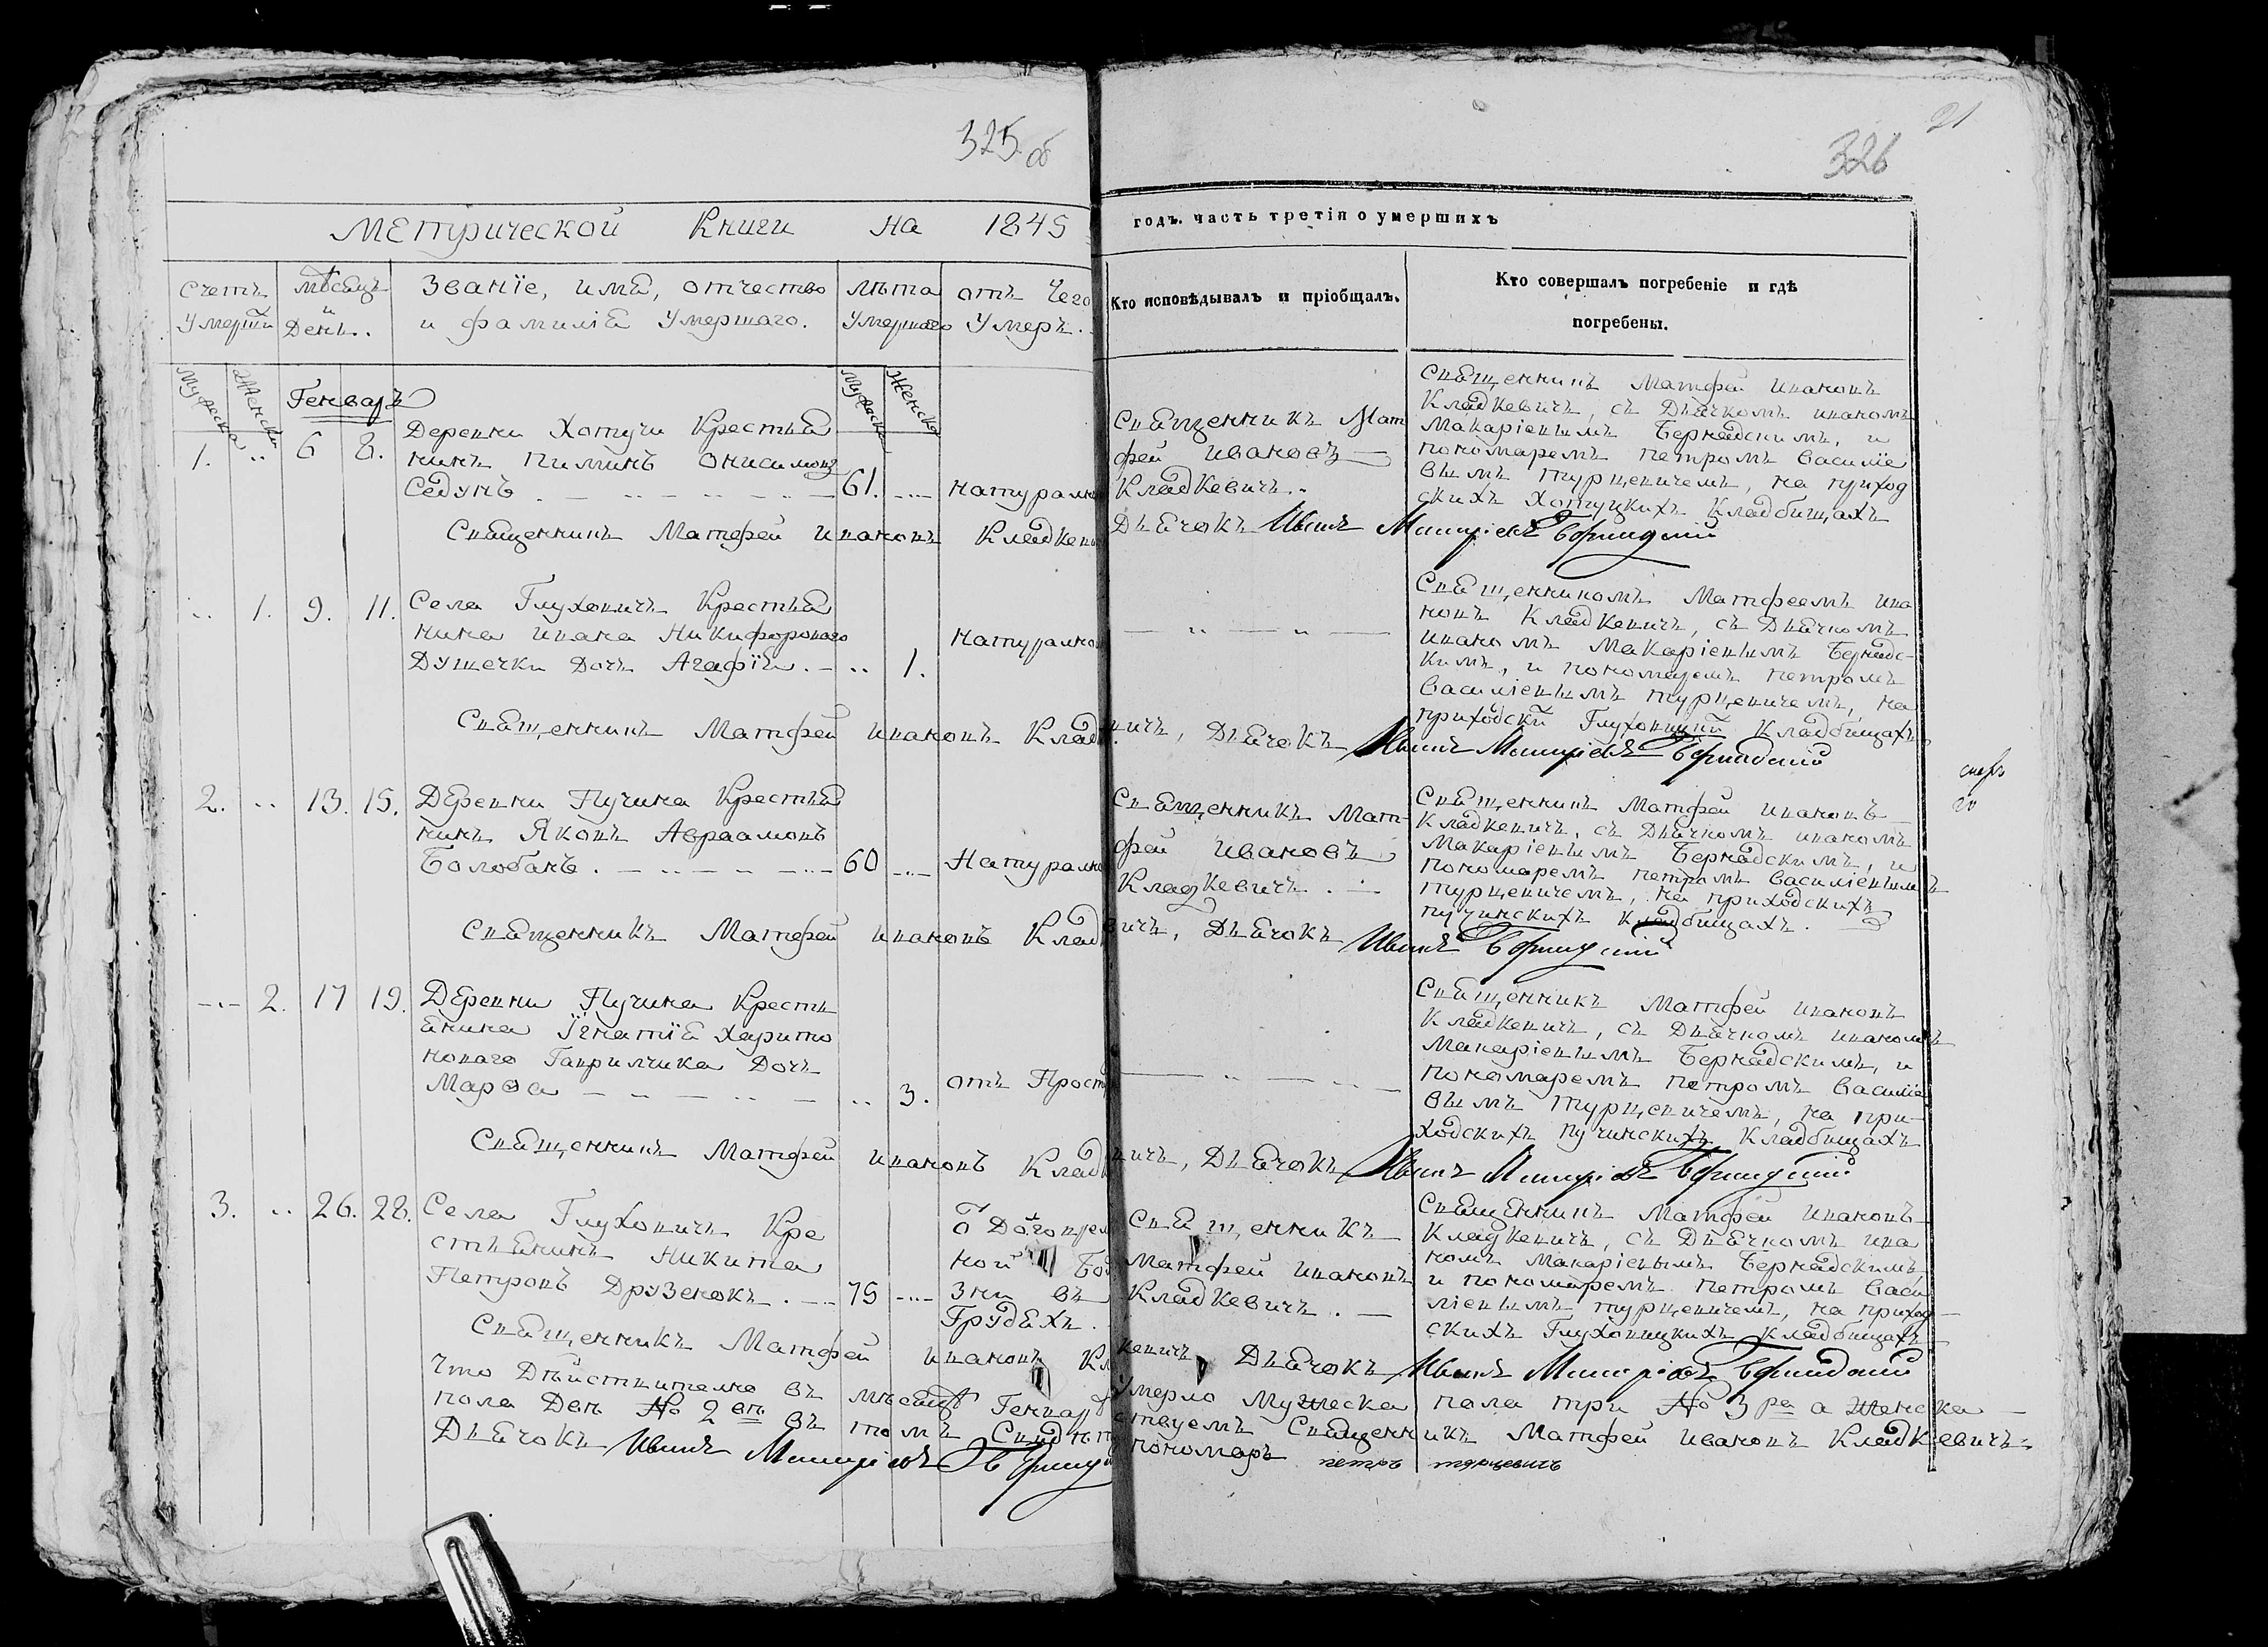 325 об
21
326
Метрической Книги на 1845
годъ. часть третiя о умершихъ
Счетъ Умерши
мѣсяцъ и День.
Званїе, имя, отчество и фамилїя Умершаго.
Лѣта Умершаго
отъ Чего Умеръ.
Кто исповѣдывалъ и прiобщалъ.
Кто совершалъ погребенiе и гдѣ погребены.
Мужеска
Женски
Генварь
Мужеска
Женска
1. 6 8.
Деревни Хотучи Крестья
нинъ Пиминъ Онисимовъ
Седунъ 61.
натурално
Священникъ Мат
фей Ивановъ
Кладкевичъ
Священникъ Матфей Ивановъ
Кладкевичъ, съ Дьячкомъ иваномъ
Макарiевымъ Бернадскимъ, и
пономаремъ петромъ василiе
вымъ турцевичемъ, на приход
скихъ Хотуцкихъ Кладбищахъ
Священникъ Матфей Ивановъ Кладкеви
Дьячокъ Иванъ Макарiевъ Бернадскiй
1. 9. 11.
Села Глуховичъ Крестья
нина ивана Никифорова
Душечки Дочь Агафїя. 1.
натурално
Священникомъ Матфеемъ ива
новъ Кладкевичъ, съ Дьячкомъ
иваномъ Макарiевымъ Бернадс-
кимъ, и пономаремъ петромъ
василiевымъ турцевичемъ, на
приходскй Глуховицкй Кладбищахъ
Священникъ Матфей ивановъ Кладкевичъ, Дьячокъ Иванъ Макарiевъ Бернадскiй
2. 13. 15.
Деревни Пучина Крестья
нинъ Яковъ Авраамовъ
Болобанъ. 60
Натурално
Священникъ Мат-
фей Ивановъ
Кладкевичъ.
Священникъ Матфей ивановъ
Кладкевичъ, съ Дьячкомъ иваномъ
Макарiевымъ Бернадскимъ, и
пономаремъ петромъ василiевымъ
турцевичемъ, на приходскихъ
пучинскихъ Кладбищахъ.
Священникъ Матфей ивановъ Кладкевичъ, Дьячокъ Иванъ Бернадскiй
2. 17 19.
Деревни Пучина Кресть
янина Їгнатїя Харито
новаго Гаврилчика Дочь
Марѳа 3.
отъ Прост
Священникъ Матфей ивановъ
Кладкевичъ, съ Дьячкомъ иваномъ
Макарiевымъ Бернадскимъ, и
пономаремъ петромъ василiе
вымъ турцевичемъ, на при-
ходскихъ пучинскихъ Кладбищахъ
Священникъ Матфей ивановъ Кладкевичъ, Дьячокъ Иванъ Макарiевъ Бернадскiй
3. 26. 28.
Села Глуховичъ Кре
стьянинъ Никита
Петровъ Друзенокъ. 75
ной
зни въ
Грудяхъ.
Священникъ
Матфей ивановъ
Кладкевичъ.
Священникъ Матфей ивановъ
Кладкевичъ, съ Дьячкомъ ива
номъ Макарiевымъ Бернадскимъ,
и пономаремъ петромъ васи
лiевымъ турцевичемъ, на приход
скихъ Глуховицкихъ Кладбищахъ
Священникъ Матфей ивановъ Кладкевичъ Дьячокъ Иванъ Макарiевъ Бернадскiй
Что Дѣйствително въ мѣсяцѣ Генвар Умерло Мужеска пола три № 3 ра а женска
пола Двѣ № 2 въ томъ Свидѣтелствуемъ Священникъ Матфей ивановъ Кладкевичъ.
Дьячокъ Иванъ Макарiевъ Бернад пономарь петръ турцевичъ